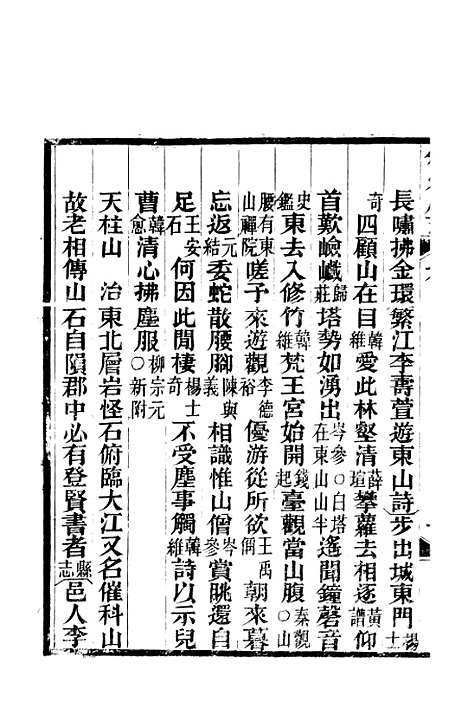 長嘯拂金環繁江李壽萱遊東山詩步出城東門楊士
奇四顧山在目韓維愛此林壑清薛瑄攀蘿去相逐黃譜仰
首歎嶮巇歸莊塔勢如湧出岑參○白塔在東山山半遙聞鐘磬音
史鑑東去入修竹韓維梵王宮始開錢起臺觀當山腹秦觀○山
腰有東山禪院嗟子來遊觀李德裕優游從所欲王禹偁朝來暮
忘返元結委蛇散腰腳陳與義相識惟山僧岑參賞眺還自
足王安石何因此閒棲楊士奇不受塵事觸韓維詩以示兒
曹韓愈清心拂塵服柳宗元○新附
天柱山 治東北層岩怪石俯臨大江又名催科山
故老相傳山石自隕郡中必有登賢書者縣志邑人李